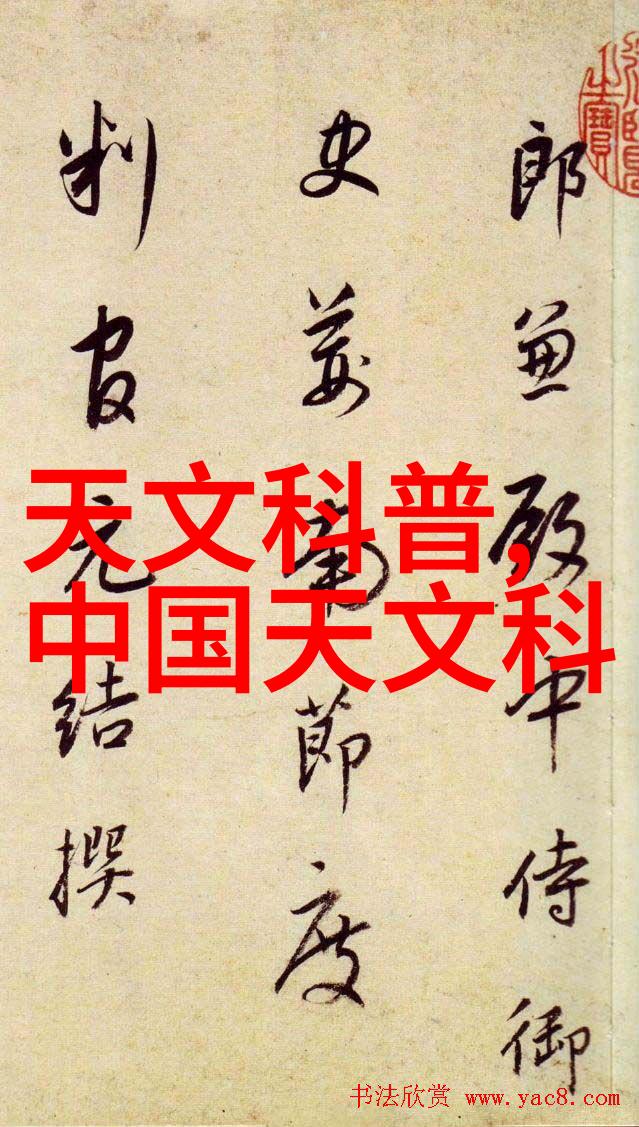 郎兼殿中侍御
史荆南節度
判官元結撰
天文科普,
中国天文科
书法欣赏 www.yac8.com